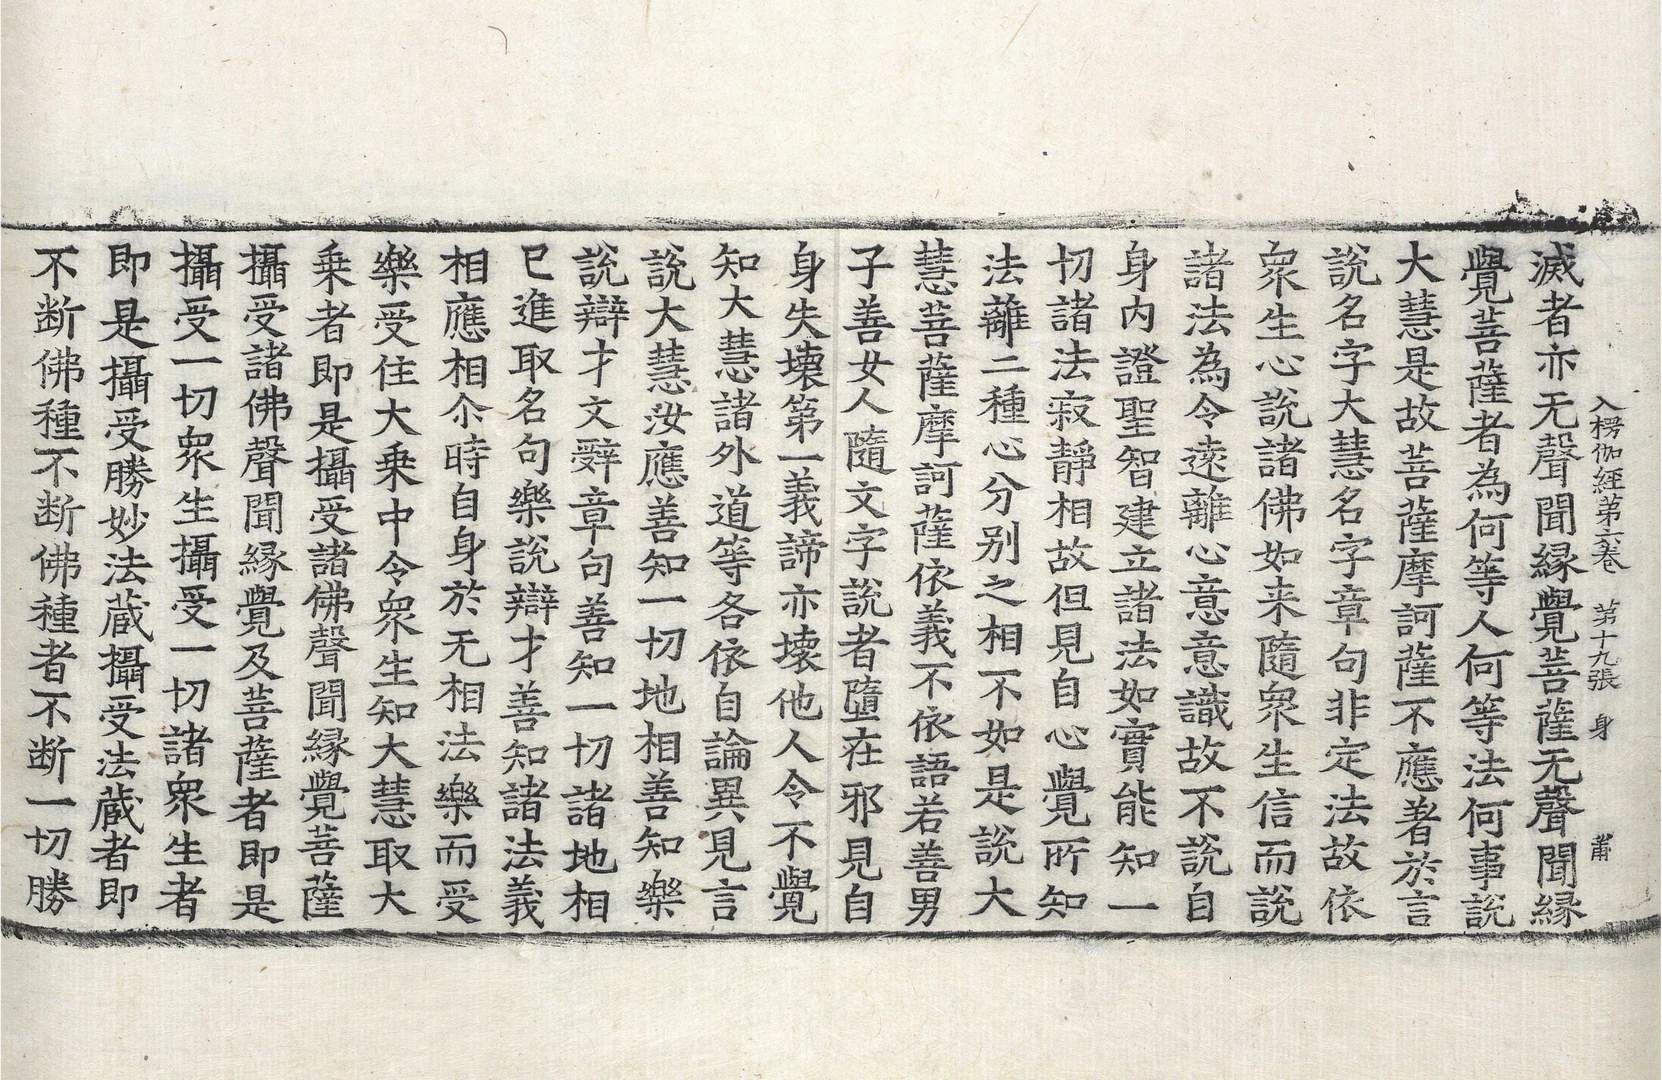 入楞伽經第六卷 第十九張 身 莆
滅者亦无聲聞緣覺菩薩无聲聞緣
覺菩薩者為何等人何等法何事說
大慧是故菩薩摩訶薩不應著於言
說名字大慧名字章句非定法故依
衆生心說諸佛如来隨衆生信而說
諸法為令遠離心意意識故不說自
身内證聖智建立諸法如實能知一
切諸法寂靜相故但見自心覺所知
法離二種心分别之相不如是說大
慧菩薩摩訶薩依義不依語若善男
子善女人隨文字說者墮在邪見自
身失壊第一義諦亦壊他人令不覺
知大慧諸外道等各依自論異見言
說大慧汝應善知一切地相善知樂
說辯才文辭章句善知一切諸地相
已進取名句樂說辯才善知諸法義
相應相尒時自身於无相法樂而受
樂受住大乗中令衆生知大慧取大
乗者即是攝受諸佛聲聞緣覺菩薩
攝受諸佛聲聞緣覺及菩薩者即是
攝受一切衆生攝受一切諸衆生者
即是攝受勝妙法蔵攝受法蔵者即
不断佛種不断佛種者不断一切勝